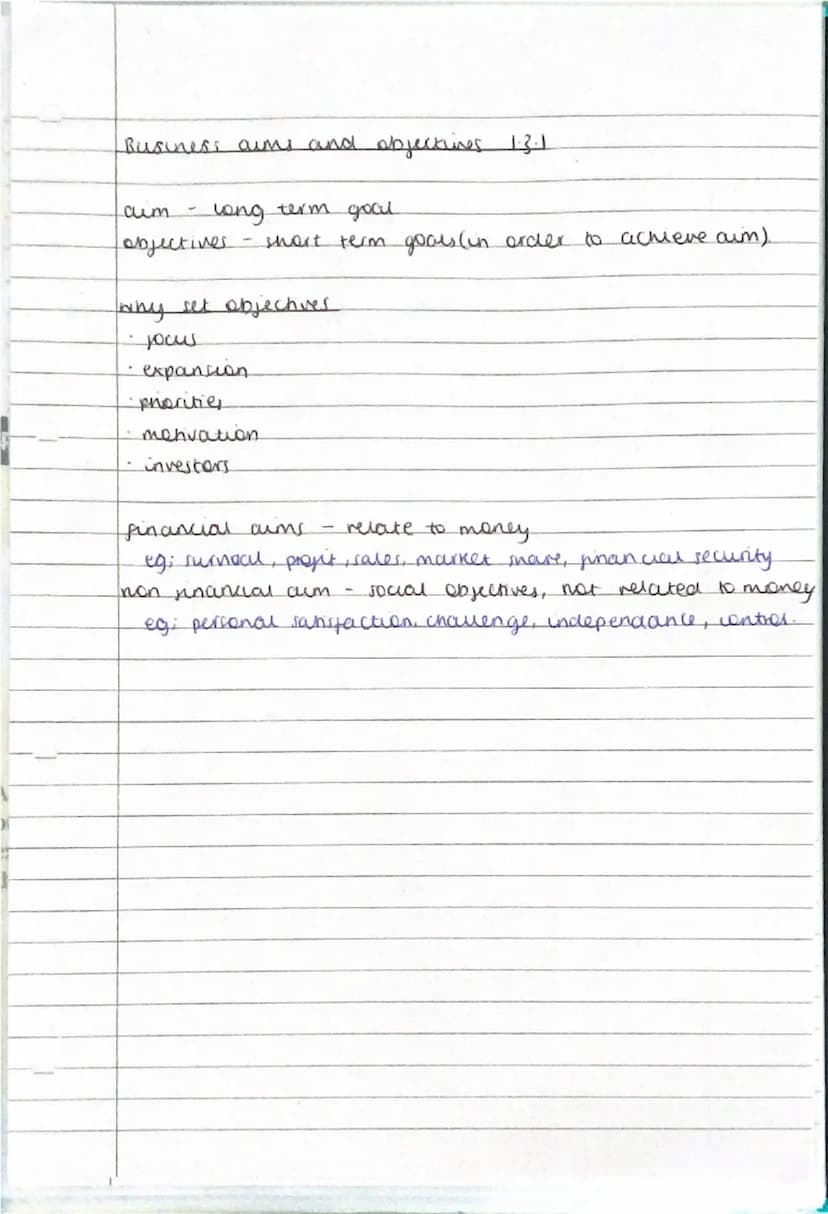 Business aims and objectives 1.3.1
aim - long term goal
objectives - short term goals (in order to achieve aim)
why set objectives
· focus
· expansion
· priorities
· motivation
· investors
financial aims - relate to money
eg: survival, profit, sales, market share, financial security
non financial aim - social objectives, not related to money
eg: personal satisfaction, challenge, independance, control.